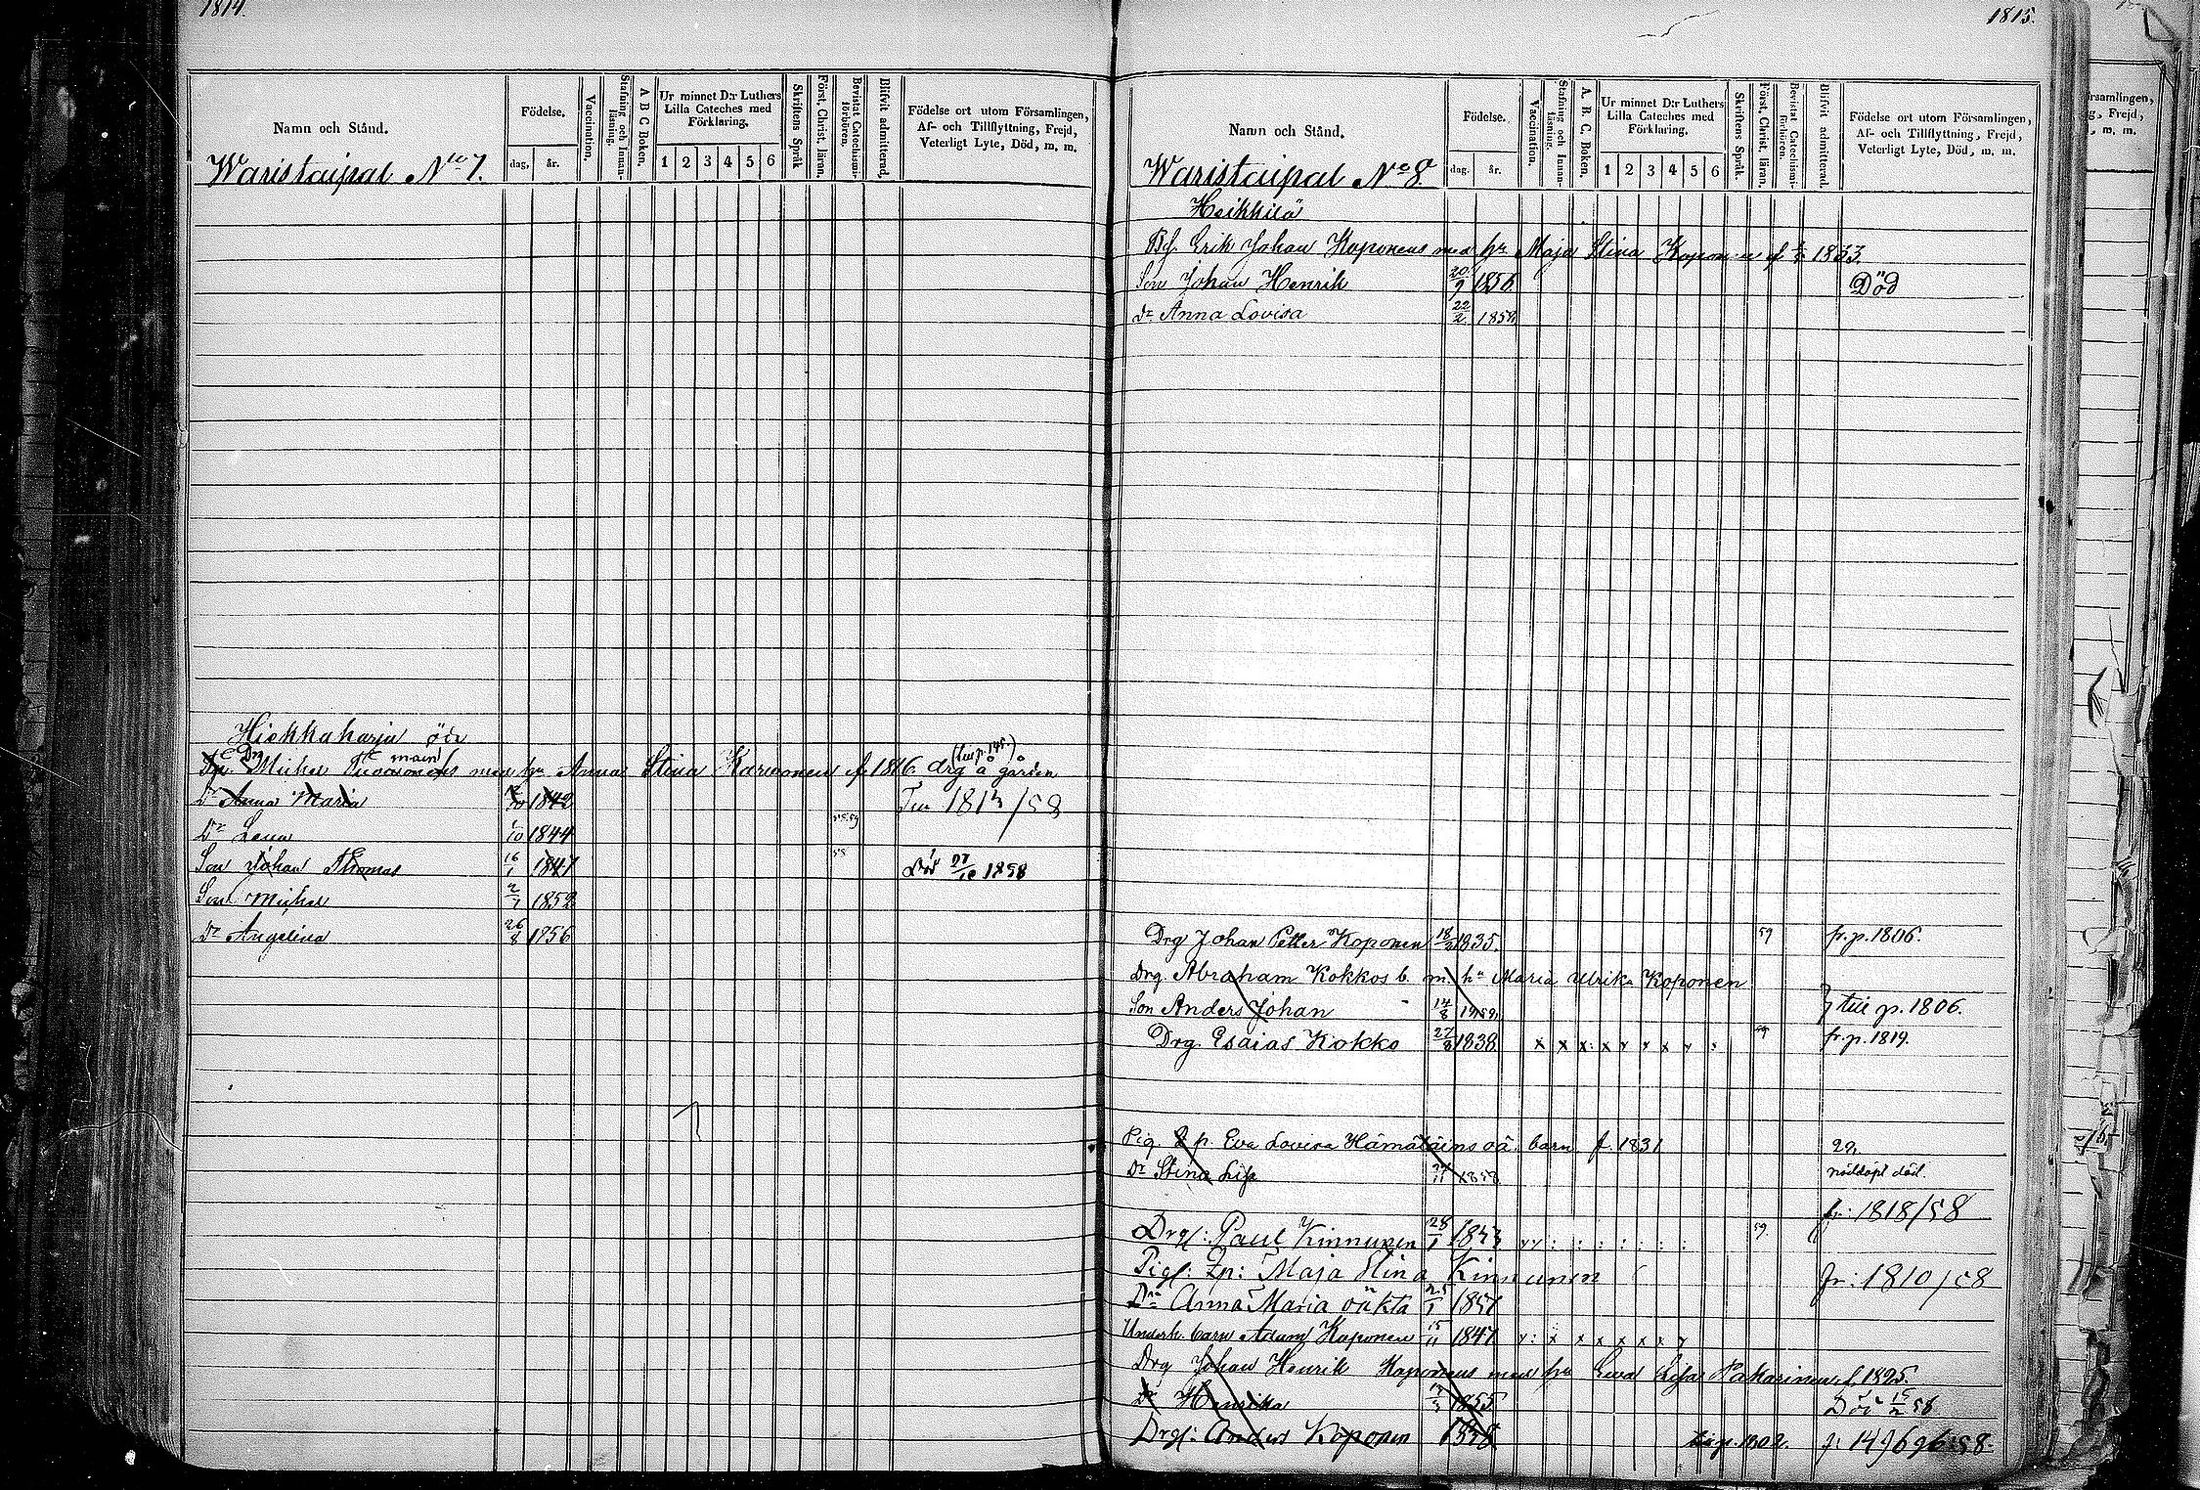 1814.
Namn och Stånd.
Födelse.
dag,
år.
Vaccination,
Stafning och Innan-läsning.
A B C Boken.
Ur minnet D:r Luthers
Lilla Cateches med
Förklaring.
1 2 3 4 5 6
Skriftens Språk
Först. Christ. läran.
Bevistat Catechismi-förhören.
Blifvit admitterad.
Födelse ort utom Församlingen,
Af- och Tillflyttning, Frejd,
Veterligt Lyte, Död, m. m.
Waristaipal No 7.
Hiekkaharja öde
Michel med hu Anna Stina Karvonen f. 1816. drg å gården
Dr Anna Maria 1842 1813/58
Dr Lena 1/10 1844
Son Johan Thomas 16/1 1847 Död 27/10 1858
Son Michel 2/7 1852
Dr Angelina 26/8 1856
1815.
Namn och Stånd.
Födelse.
dag.
år.
Vaccination,
Stafning och Innan-läsning.
A. B. C. Boken,
Ur minnet D:r Luthers
Lilla Cateches med
Förklaring.
1 2 3 4 5 6
Skriftens Språk.
Först. Christ. läran,
Bevistat Catechismi-förhören.
Blifvit admitterad.
Födelse ort utom Församlingen,
Af- och Tillflyttning, Frejd,
Veterligt Lyte, Död, m. m.
Waristaipal No 8.
Heikkilä
Erik Johan Koponens med hu Maja Stina Koponen f 1833.
Son Johan Henrik 20/9 1856 Död
Dr Anna Lovisa 22/2 1858
Drg Johan Petter Koponen 18/2 1835. 59 fr. p. 1806.
Drg. Abraham Kokkos b. m. hu Maria Ulrika Koponen
Son Anders Johan 14/8 till p. 1806.
Drg. Esaias Kokko 27/8 1838 x x x x x x x 59 fr. p. 1819.
Pig. Eva Lovisa Hämäläins oä. barn f. 1831
Dr Stina Lisa 1858 nöddöpt död.
fr: 1818/58
Drg: Paul Kinnunen 28/1 59.
Pig: Maja Stina Kinnunen fr: 1810/58
Dr Anna Maria oäkta 25/1 1857
Underh. barn Adam Koponen 15/11 1847 x x x x x
Drg Johan Henrik Koponens med hu Eva Lisa Pakarinen f. 1825.
Dr Henrika 1855 Död 15/2 58
Drg: Anders Koponen 1838 p. 1802.